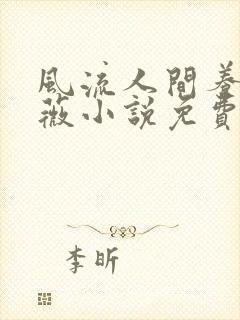 風流人間養
薇小說免費
李昕